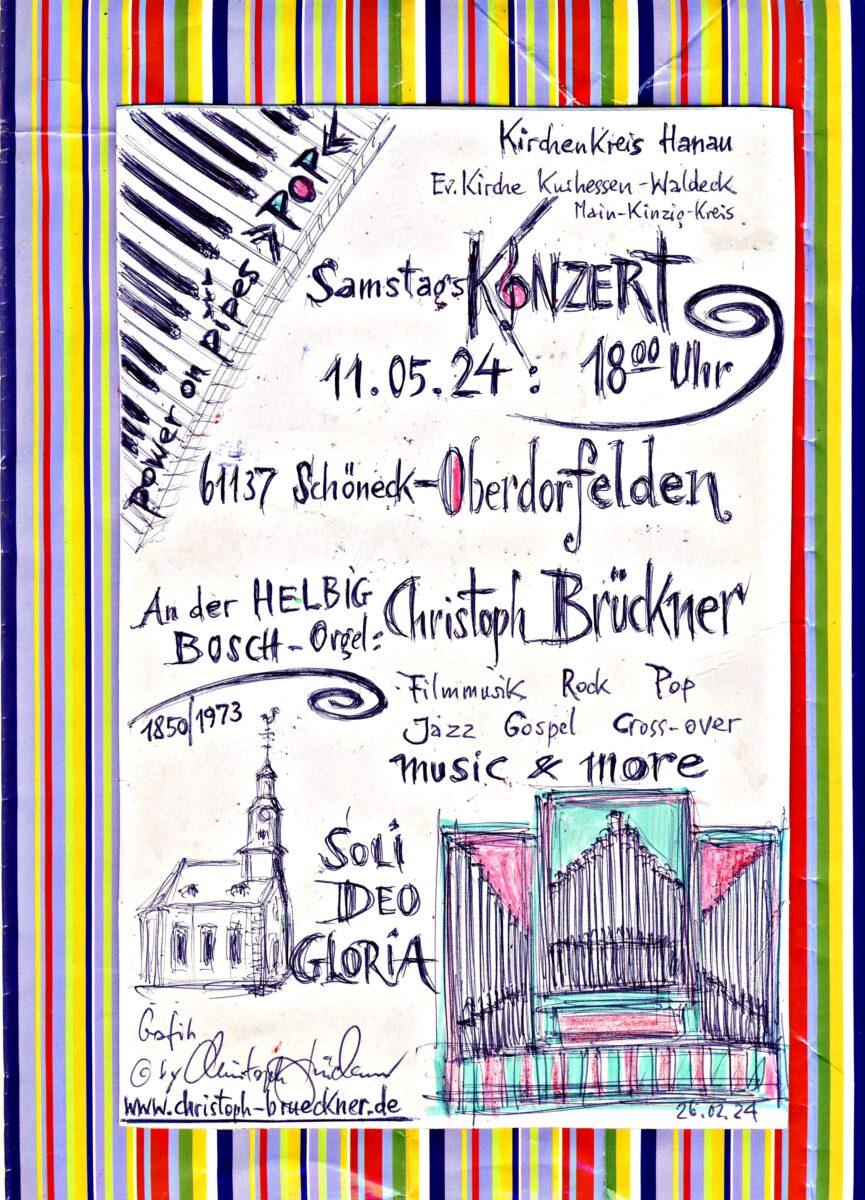 Kirchenkreis Hanau
Ev. Kirche Kurhessen-Waldeck
Main-Kinzig-Kreis
power on pipes »POP«
SamstagsKONZERT
11.05.24 : 18⁰⁰ Uhr
61137 Schöneck-Oberdorfelden
An der HELBIG
BOSCH-Orgel: Christoph Brückner
1850/1973
Filmmusik Rock Pop
Jazz Gospel Cross-over
music & more
SOLI
DEO
GLORIA
Grafik
© by Christoph Brückner
www.christoph-brueckner.de
26.02.24